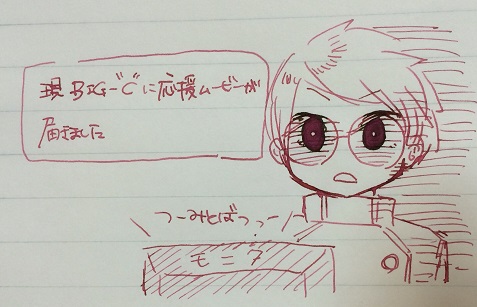 現BIG"C"に応援ムービーが
届きました
つーみとばっっー
モニタ